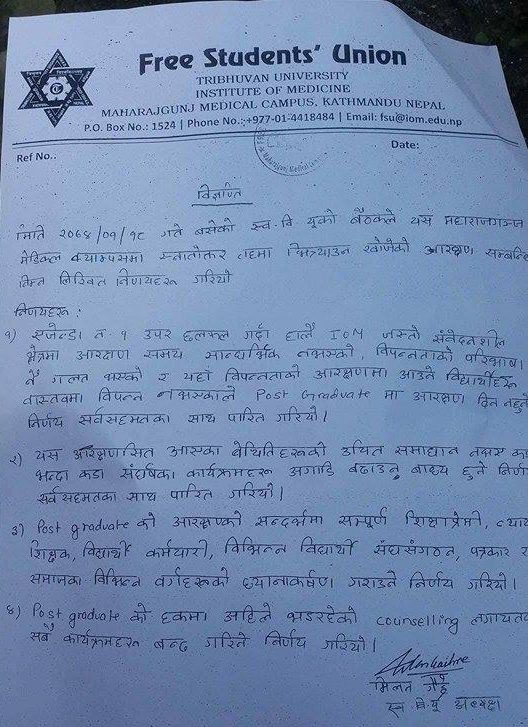 Free Students' Union
TRIBHUVAN UNIVERSITY
INSTITUTE OF MEDICINE
MAHARAJGUNJ MEDICAL CAMPUS, KATHMANDU NEPAL
P.O. Box No.: 1524 | Phone No.:+977-01-4418484 | Email: fsu@iom.edu.np
Ref No..
Date:
विज्ञप्ति
मिति गते बसेको स्व.वि.यूको बैठकले यस महाराजगञ्ज
मेडिकल क्याम्पसमा स्नातोकोत्तर तहमा भित्र्याउन खोजेको आरक्षण सम्बन्धि
निम्न लिखित निर्णयहरू गरियो
निर्णयहरू :
१) एजेन्डा नं. १ उपर छलफल गर्दा हालै IOM जस्तो संवेदनशील
क्षेत्रमा आरक्षण समय सान्दर्भिक नभएको, विपन्नताको परिभाषा
नै गलत भएको र यहाँ विपन्नताको आरक्षणमा आउने विद्यार्थीहरू
वास्तवमा विपन्न नभएकाले Post Graduate मा आरक्षण दिन नहुने
निर्णय सर्वसहमतका साथ पारित गरियो।
२) यस आरक्षणसित आएका बेथितिहरूको उचित समाधान नभएमा
भन्दा कडा संघर्षका कार्यक्रमहरू अगाडि बढाउनु बाध्य हुने
सर्वसहमतका साथ पारित गरियो।
३) Post graduate को आरक्षणको सन्दर्भमा सम्पूर्ण शिक्षाप्रेमी,
शिक्षक, विद्यार्थी कर्मचारी, विभिन्न विद्यार्थी संघसंगठन, पत्रकार र
समाजका विभिन्न वर्गहरूको ध्यानाकर्षण गराउने निर्णय गरियो।
४) Post graduate को हकमा अहिले भइरहेको counselling लगायतका
सबै कार्यक्रमहरू बन्द गरिने निर्णय गरियो।
मिलन गैह्रे
स्व.वि.यू अध्यक्ष